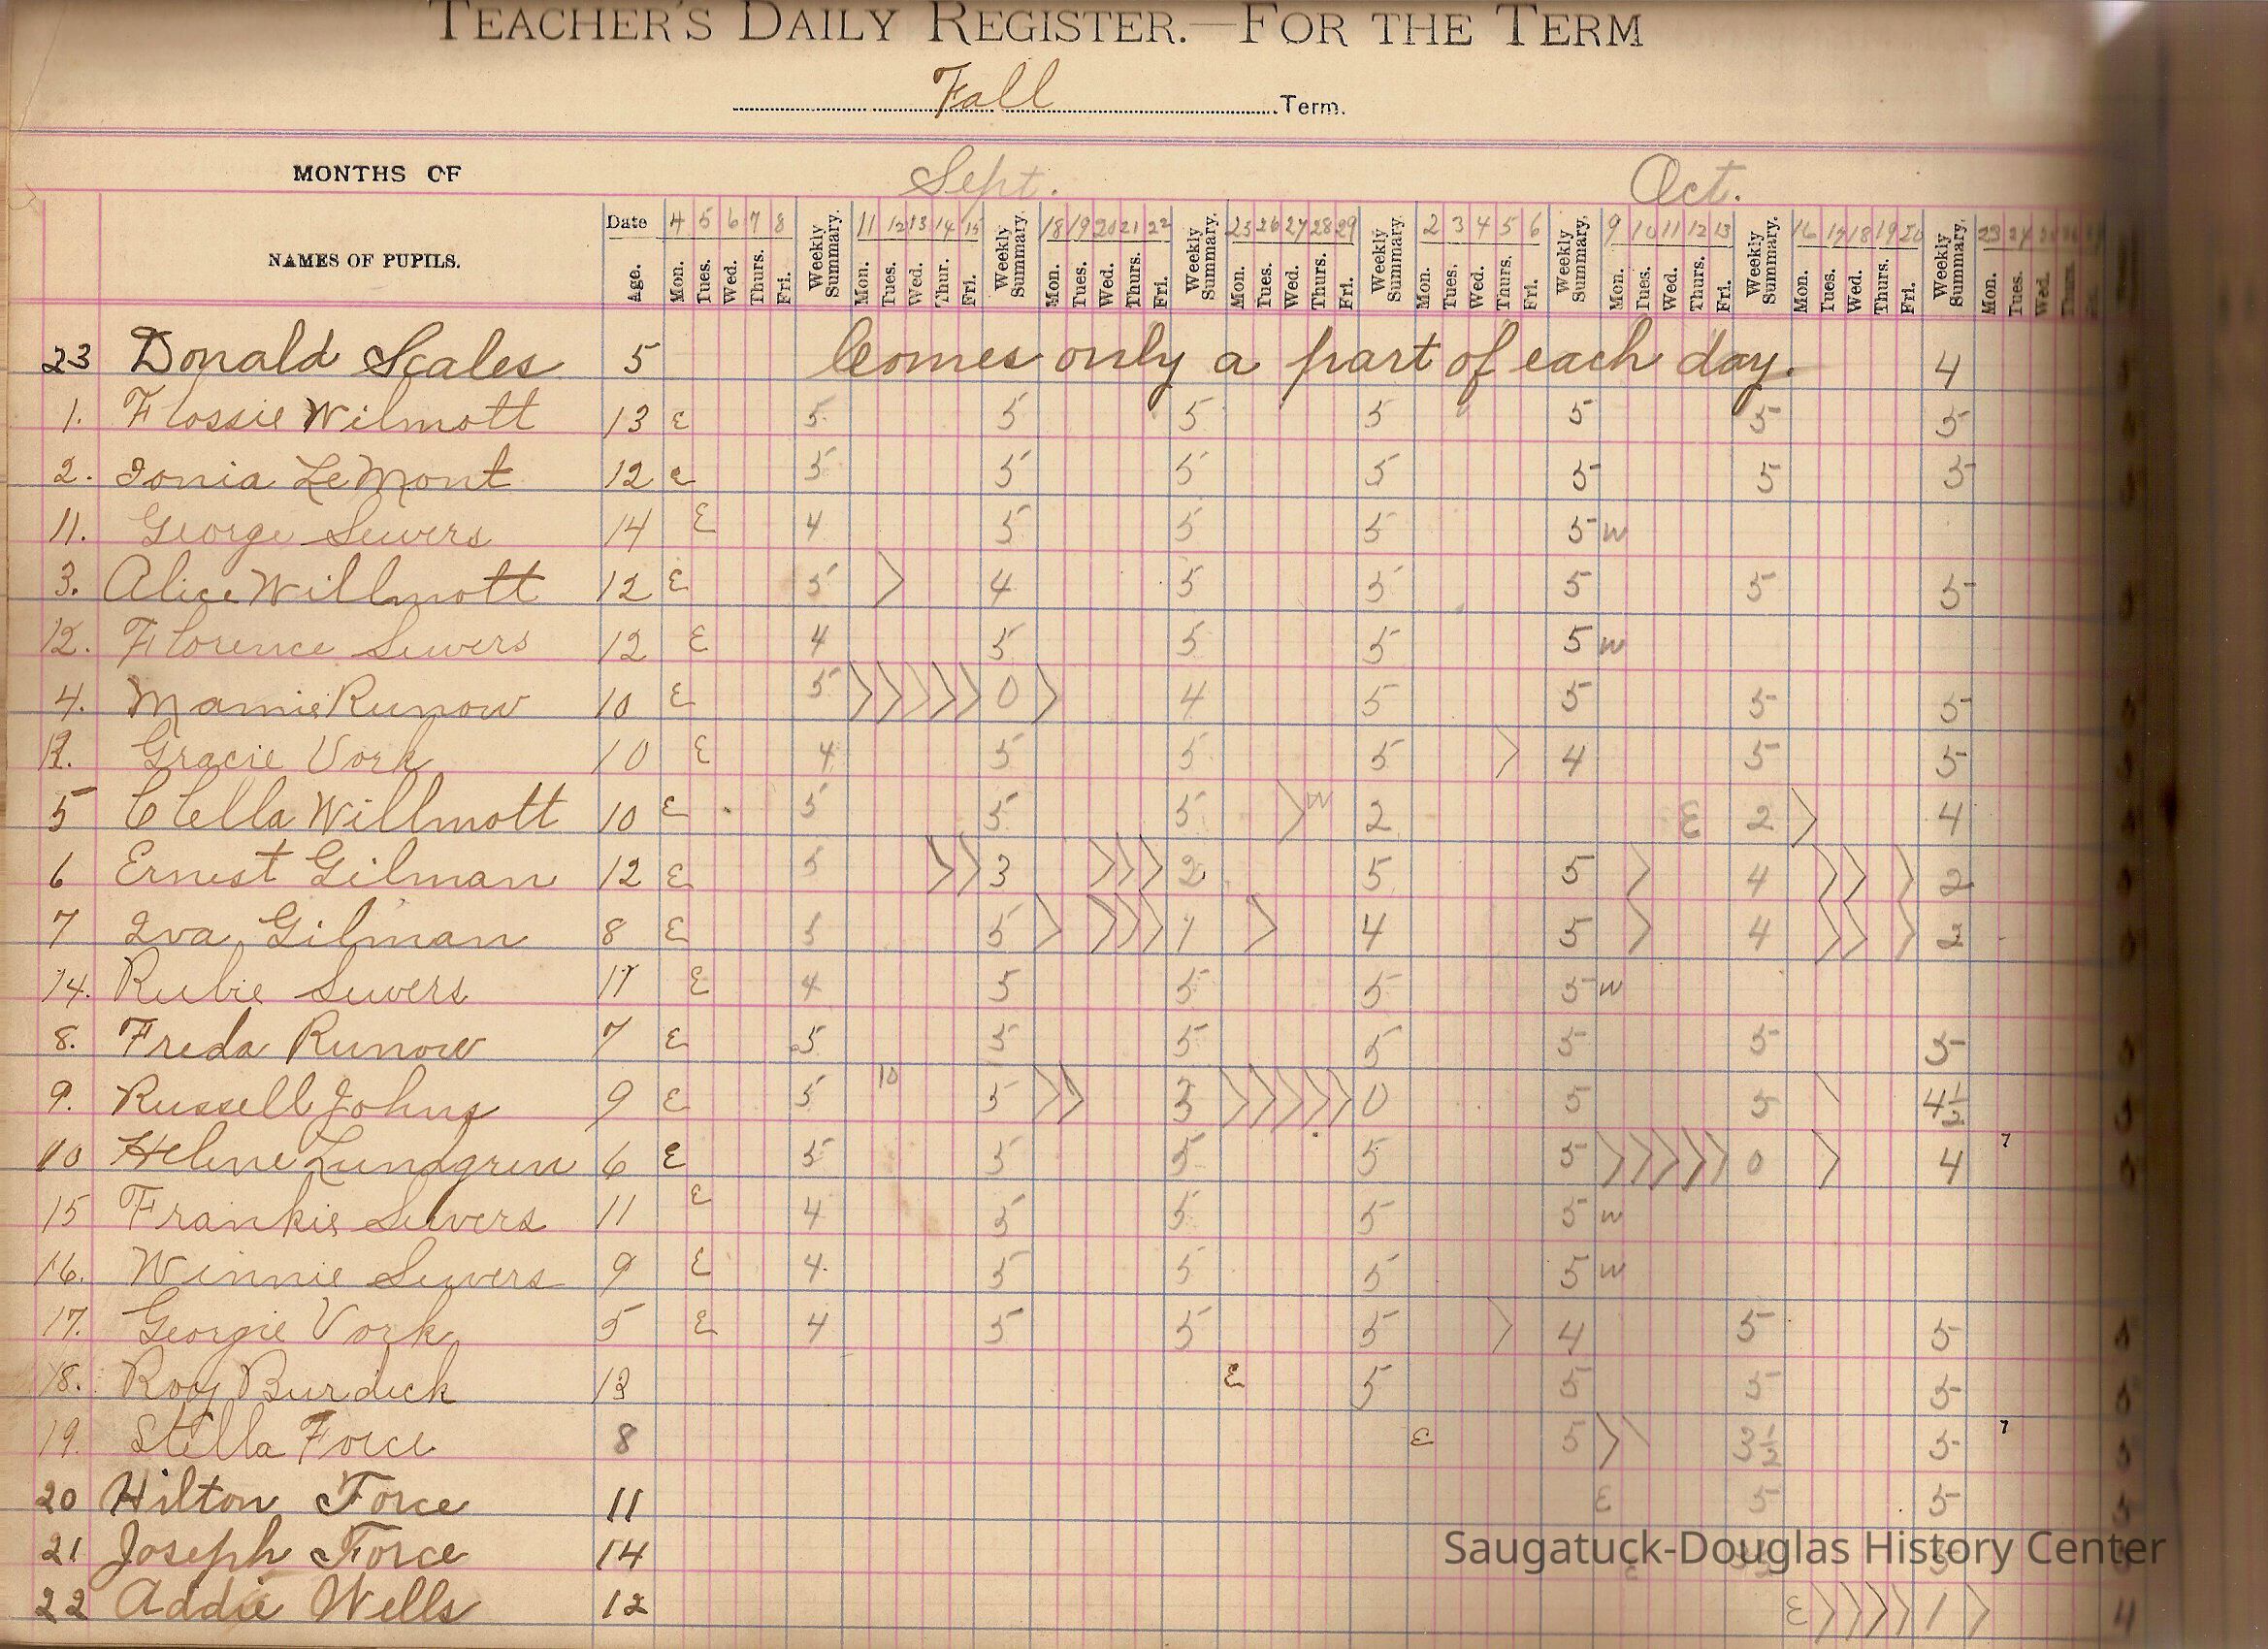 TEACHER'S DAILY REGISTER.—FOR THE TERM
Fall Term.
MONTHS OF Sept. Oct.
Date 4 5 6 7 8 11 12 13 14 15 18 19 20 21 22 25 26 27 28 29 2 3 4 5 6 9 10 11 12 13 16 17 18 19 20 23 24
NAMES OF PUPILS. Age. Mon. Tues. Wed. Thurs. Fri. Weekly Summary. Mon. Tues. Wed. Thur. Fri. Weekly Summary. Mon. Tues. Wed. Thurs. Fri. Weekly Summary. Mon. Tues. Wed. Thurs. Fri. Weekly Summary. Mon. Tues. Wed. Thurs. Fri. Weekly Summary. Mon. Tues. Wed. Thurs. Fri. Weekly Summary. Mon. Tues. Wed. Thurs. Fri. Weekly Summary. Mon. Tues. Wed. Thurs.
23 Donald Scales 5 Comes only a part of each day. 4
1. Flossie Wilmott 13 E 5 5 5 5 5 5 5
2. Ionia LeMont 12 E 5 5 5 5 5 5 5
11. George Sewers 14 E 4 5 5 5 5 W
3. Alice Willmott 12 E 5 > 4 5 5 5 5 5
12. Florence Sewers 12 E 4 5 5 5 5 W
4. Mamie Runow 10 E 5 > > > > > 0 > 4 5 5 5 5
Gracie Vork 10 E 4 5 5 5 > 4 5 5
5 Clella Willmott 10 E 5 5 5 > W 2 E 2 > 4
6 Ernest Gilman 12 E 5 > > 3 > > > 2 5 5 > 4 > > > 2
7 Iva Gilman 8 E 5 5 > > > > 1 > 4 5 > 4 > > > 2
14. Rubie Sewers 11 E 4 5 5 5 5 W
8. Freda Runow 7 E 5 5 5 5 5 5 5
9. Russell Johns 9 E 5 10 5 > > 3 > > > > > 0 5 5 \ 4½
10 Helene Lundgren 6 E 5 5 5 5 5 > > > > > 0 > 4 7
15 Frankie Sewers 11 E 4 5 5 5 5 W
16. Winnie Sewers 9 E 4 5 5 5 5 W
17. Georgie Vork 5 E 4 5 5 5 > 4 5 5
18. Roy Burdick 13 E 5 5 5 5
19. Stella Force 8 E 5 > \ 3½ 5 7
20 Hilton Force 11 E 5 5
21 Joseph Force 14 E 5
22 Addie Wells 12 E > > > > 1 > 4
Saugatuck-Douglas History Center